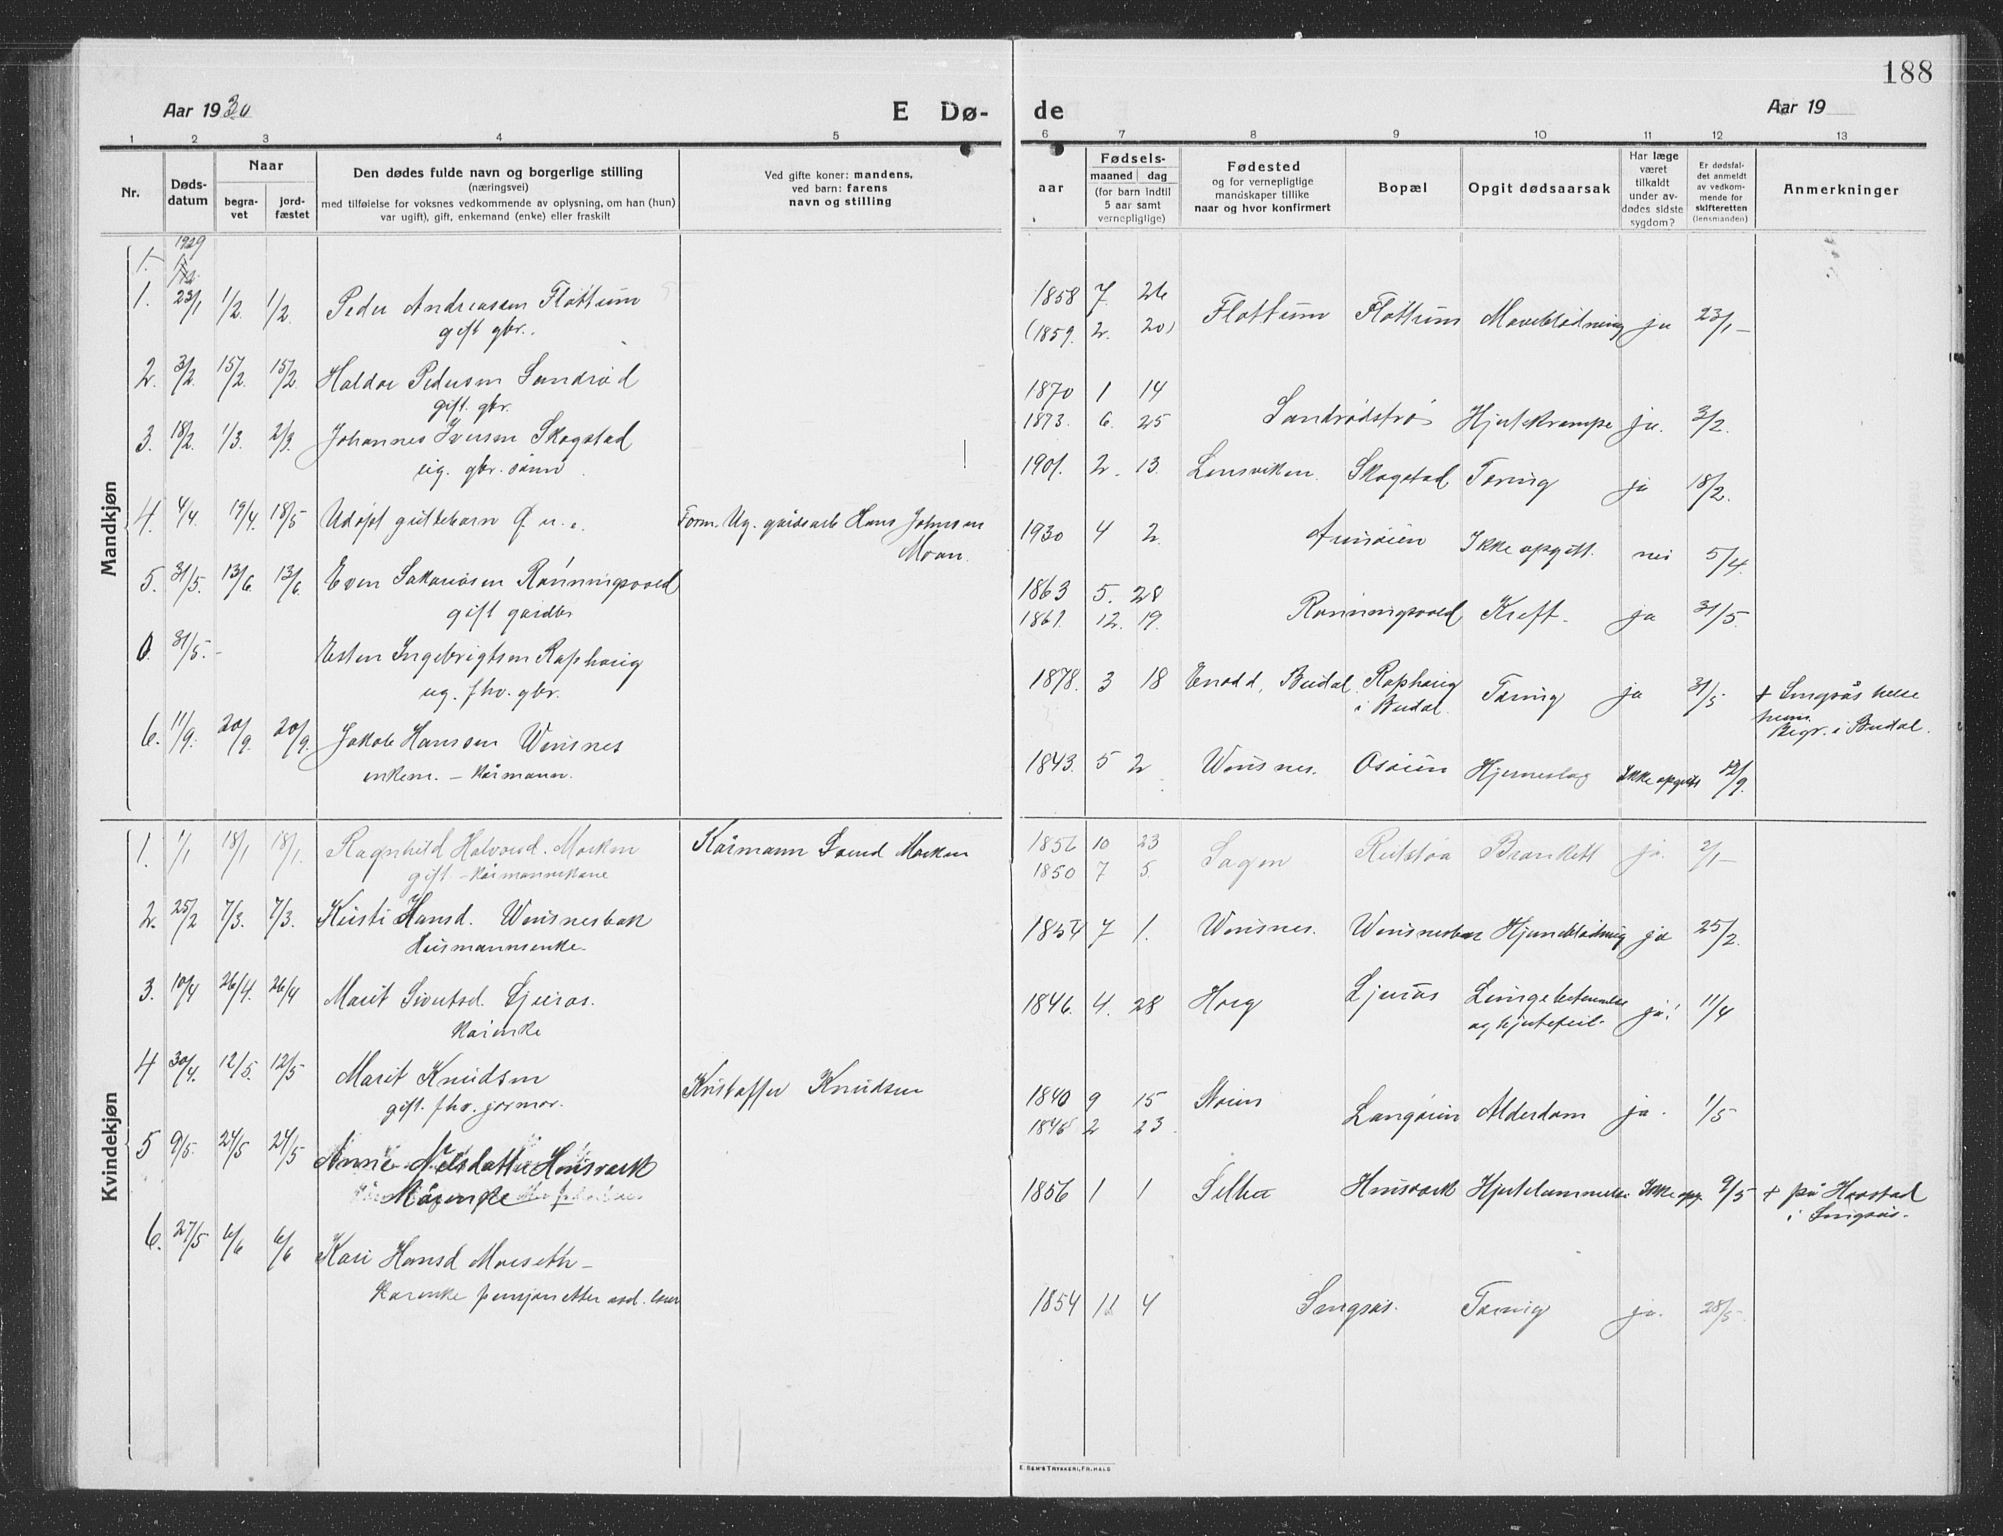 188
Aar 1930
E Dø-
de
Aar 19
1 2 3 4 5 6 7 8 9 10 11 12 13
Nr.
Døds-
datum
Naar
begra-
vet
jord-
fæstet
Den dødes fulde navn og borgerlige stilling
(næringsvei)
med tilføielse for voksnes vedkommende av oplysning, om han (hun)
var ugift), gift, enkemand (enke) eller fraskilt
Ved gifte koner: mandens,
ved barn: farens
navn og stilling
aar
Fødsels-
maaned dag
(for barn indtil
5 aar samt
vernepligtige)
Fødested
og for vernepligtige
mandskaper tillike
naar og hvor konfirmert
Bopæl
Opgit dødsaarsak
Har læge
været
tilkaldt
under av-
dødes sidste
sygdom?
Er dødsfal-
det anmeldt
av vedkom-
mende for
skifteretten
(lensmanden)
Anmerkninger
Mandkjøn
1929
1. 23/1 1/2 1/2 Peder Andreassen Flottum
gift gbr.
1858 7 26 Flottum Flottum Maveblødning ja 23/1
(1859. 2. 20)
2. 3/2 15/2 15/2 Haldor Pedersen Sandrød
gift. gbr.
1870 1 14
1873. 6. 25 Sandrødstrø Hjertekrampe ja. 3/2.
3. 18/2 1/3. 2/3. Johannes Iversen Skogstad
ug. gbr. sønn
1901. 2. 13. Lensviken. Skogstad Tæring ja 18/2.
4. 4/4. 19/4. 18/5 Udøpt guttebarn f. u. e. Form. Ug. gaardsarb Hans Johnsen
Moan.
1930 4 2. Ikke opgitt. nei 5/4.
5. 31/5. 13/6 13/6 Even Sakariasen Rønningsvold
gift gardbr
1863 5. 28
1861. 12. 19. Rønningsvold Kreft. ja 31/5.
0. 31/5. - Esten Ingebrigtsen Raphaug
ug. fhv. gbr.
1878. 3 18 Enodd, Budal. Raphaug
i Budal. Tæring ja 31/5 + Singsås helse
heim.
Begr. i Budal.
6. 11/9. 20/9. 20/9. Jakob Hanssen Winsnes
enkem. - kårmann.
1843. 5 2 Winsnes. Osøien Hjerneslag Ikke opgitt 12/9.
Kvindekjøn
1. 1/1 18/1 18/1. Ragnhild Halvorsd. Morken Kårmann Svend Morken
gift - kårmannskone
1856 10 23
1850 7 5. Sagen Reitstøa Bronkitt ja. 2/1
2. 25/2 7/3. 7/3. Kirsti Hansd. Winsnesbak
Husmannsenke.
1854 7 1. Winsnes. Winsnesbak Hjerneblødning ja 25/2.
3. 10/4 26/4. 26/4 Marit Sivertsd. Ljurås.
kårenke
1846. 4. 28 Horg Ljurås Lungebetennelse
og hjertefeil. ja. 11/4
4 30/4. 12/5. 12/5 Marit Knudsen Kristoffer Knudsen
gift. fhv. jormor.
1840 9 15
1846 2 23. Støren Langøien Alderdom ja. 1/5
5 9/5. 24/5 24/5 Anne Nelsdatter Hinsverk
Kårenke
1856 1 1 Selbu Hinsverk Hjertelammelse Ikke opg. 9/5 + på Haastad
i Singsås.
6. 27/5 6/6 6/6 Kari Hansd Moeseth
Kårenke pensjon etter avd. lærer
1854 11 4 Singsås. Tæring ja. 28/5
E. SEM'S TRYKKERI, FR. HALD